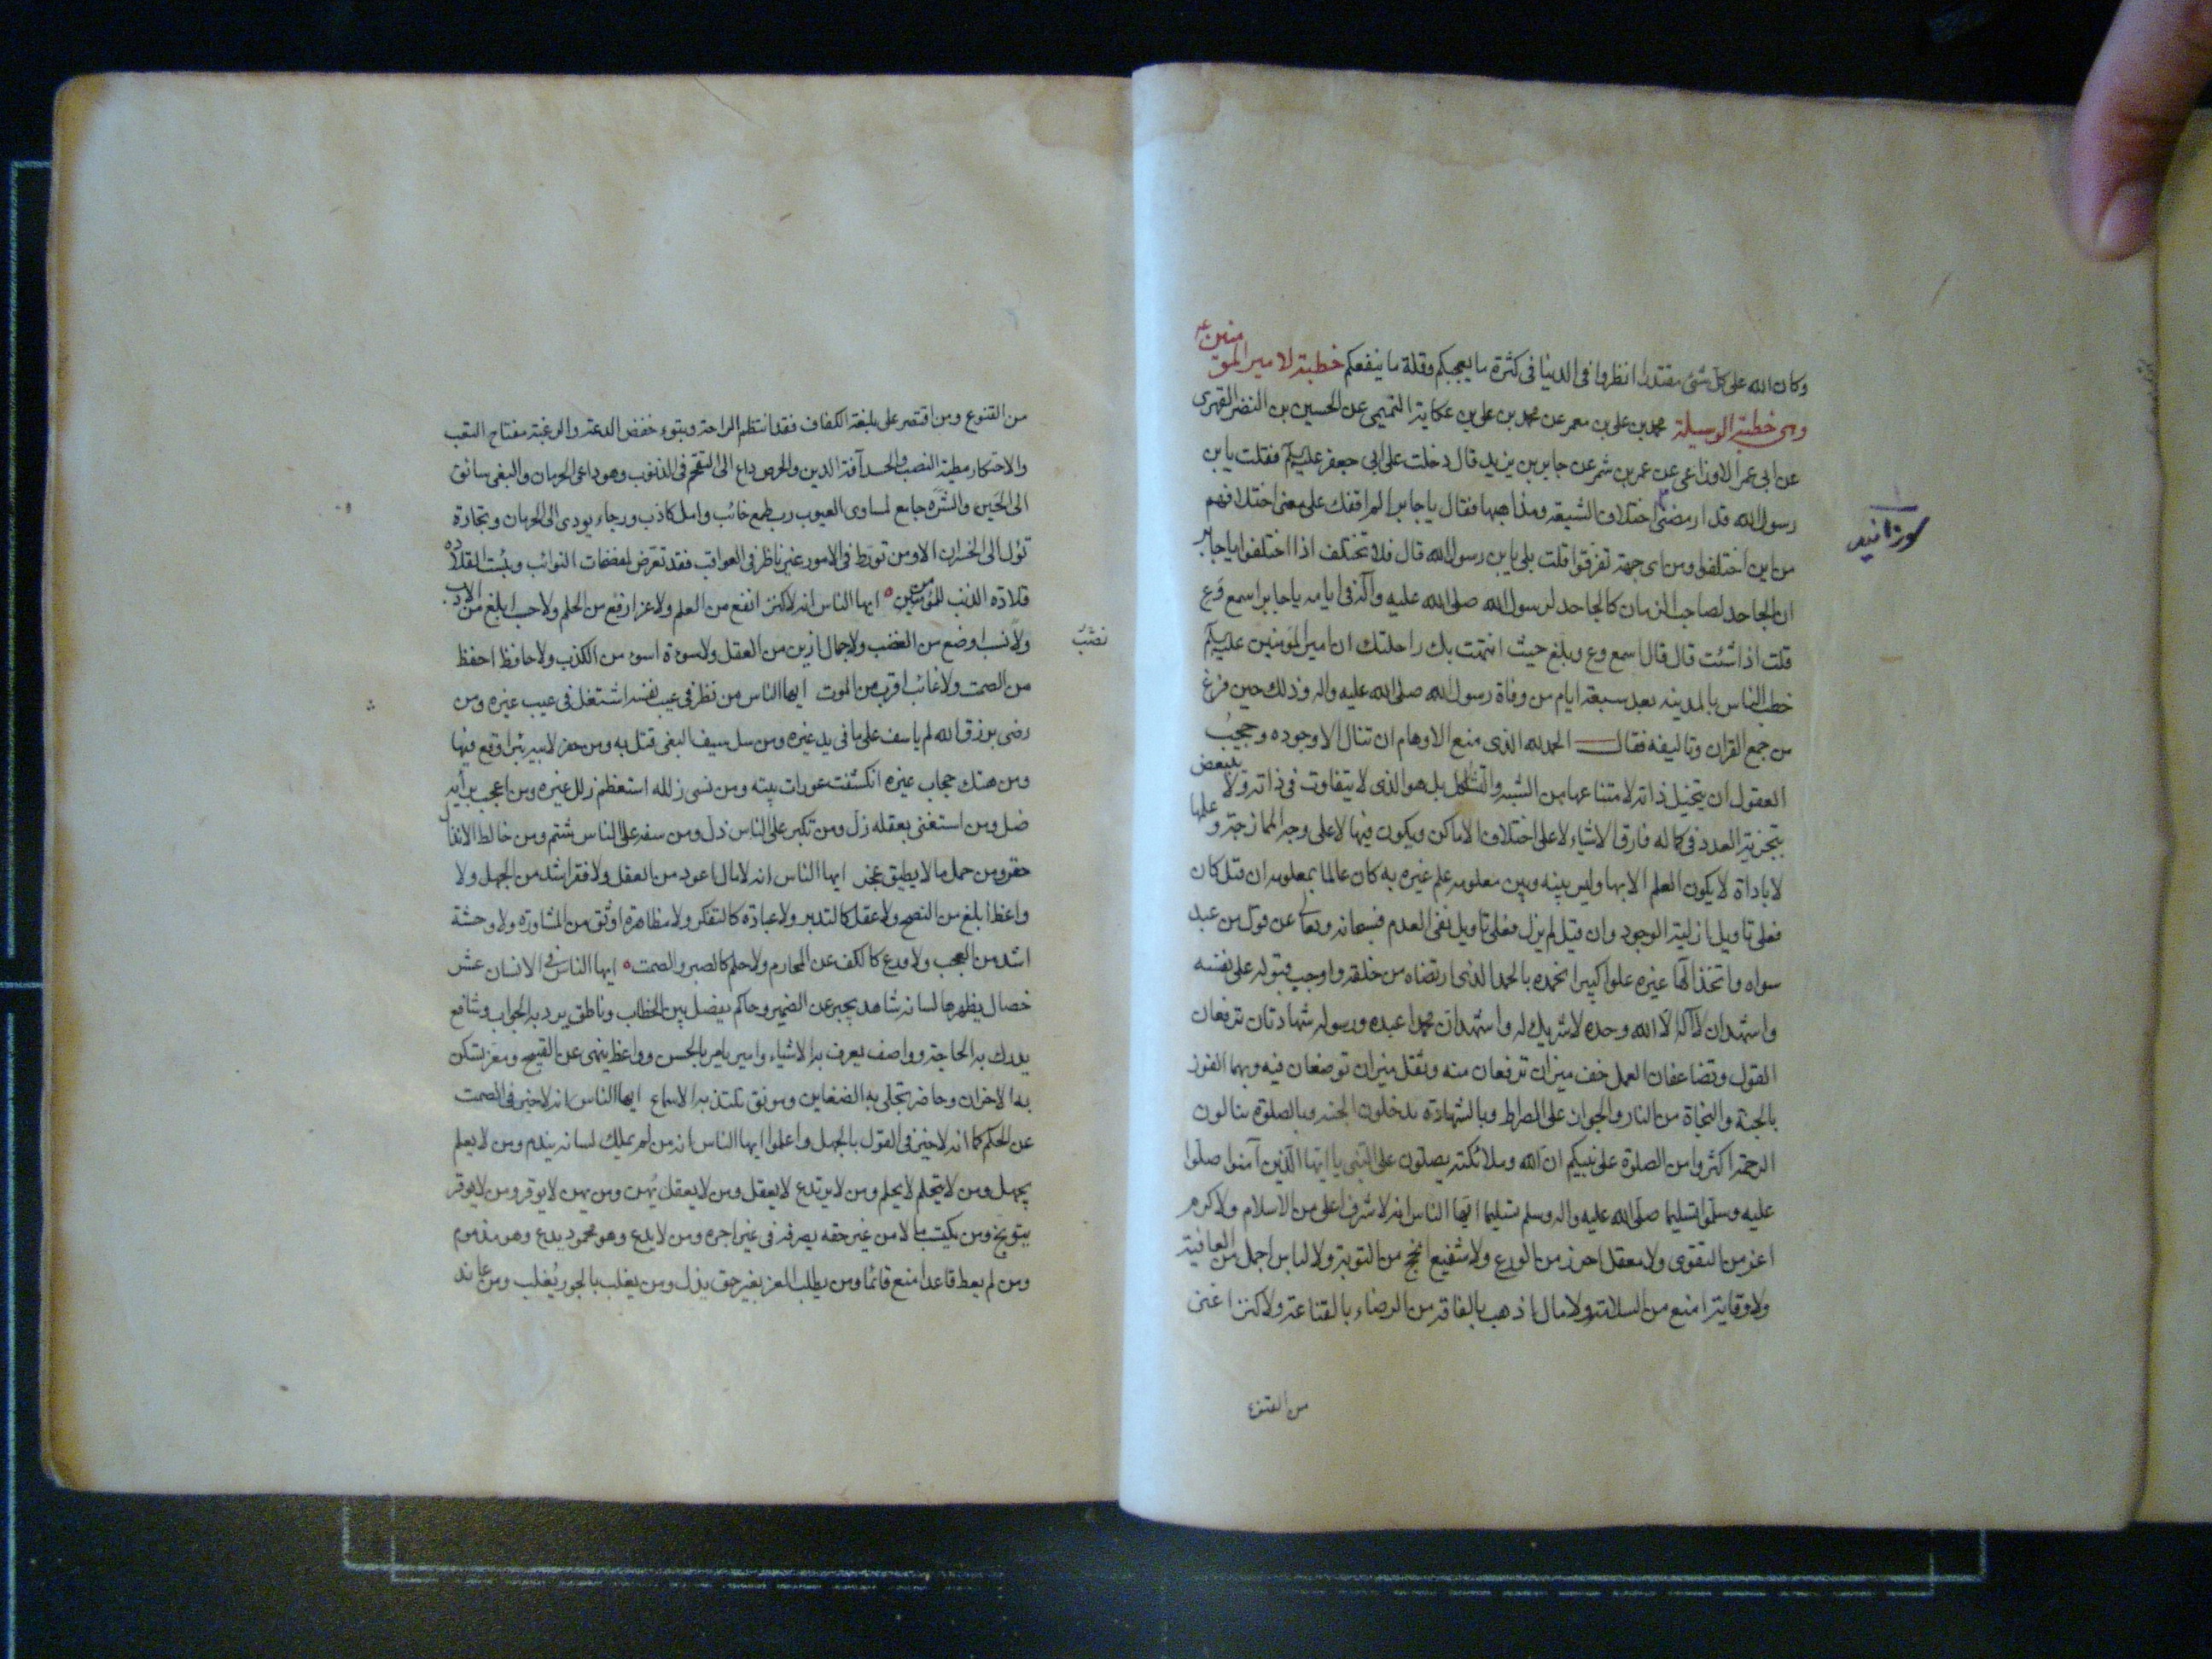 وكان الله على كل شئ مقتدرا انظروا فى الدنيا فى كثرة ما يعجبكم وقلة ما ينفعكم خطبة لامير المؤمنين ع
وهى خطبة الوسيلة محمد بن على بن معمر عن محمد بن على بن عكاية التميمى عن الحسين بن النضر الفهرى
عن ابى عمر الاوزاعى عن عمر بن شمر عن جابر بن يزيد قال دخلت على ابى جعفر عليه السلم فقلت يا بن
رسول الله قد ارمضنى اختلاف الشيعة ومذاهبها فقال يا جابر الم اقفك على معنى اختلافهم
من اين اختلفوا ومن اى جهة تفرقوا قلت بلى يا بن رسول الله قال فلا تختلف اذا اختلفوا يا جابر
ان الجاحد لصاحب الزمان كالجاحد لرسول الله صلى الله عليه وآله فى ايامه يا جابر اسمع وَعِ
قلت اذا شئت قال قال اسمع وع وبلغ حيث انتهت بك راحلتك ان امير المؤمنين عليه السلم
خطب الناس بالمدينه بعد سبعة ايام من وفاة رسول الله صلى الله عليه واله وذلك حين فرغ
من جمع القران وتاليفه فقال الحمد لله الذى منع الاوهام ان تنال الا وجوده وحجبُ
العقول ان يتخيل ذاته لامتناعها من الشبه والتشاكل بل هو الذى لا يتفاوت فى ذاته ولا يتبعض
بتجزية العدد فى كماله فارق الاشياء لا على اختلاف الاماكن ويكون فيها لا على وجه الممازجة وعلمها
لا باداة لا يكون العلم الا بها وليس بينه وبين معلومه علم غيره به كان عالما بمعلومه ان قيل كان
فعلى تاويل ازلية الوجود وان قيل لم يزل فعلى تاويل نفى العدم فسبحانه وتعالى عن قول من عبد
سواه واتخذ الها غيره علوا كبيرا نحمده بالحمد الذى ارتضاه من خلقه واوجب قبوله على نفسه
واشهد ان لا اله الا الله وحده لا شريك له واشهد ان محمدا عبده ورسوله شهادتان ترفعان
القول وتضاعفان العمل خف ميزان ترفعان منه وثقل ميزان توضعان فيه وبهما الفوز
بالجنة والنجاة من النار والجواز على الصراط وبالشهادة تدخلون الجنه وبالصلوة ينالون
الرحمة اكثروا من الصلوة على نبيكم ان الله وملائكته يصلون على النبى يا ايها الذين آمنوا صلوا
عليه وسلموا تسليما صلى الله عليه واله وسلم تسليما ايها الناس انه لا شرف اعلى من الاسلام ولا كرم
اعز من التقوى ولا معقل احرز من الورع ولا شفيع انجح من التوبة ولا لباس اجمل من العافية
ولا وقاية امنع من السلامة ولا مال اذهب بالفاقه من الرضاء بالقناعة ولا كنز اغنى
من القنوع
من القنوع ومن اقتصر على بلغة الكفاف فقد انتظم الراحة وتبوء خفض الدعة والرغبة مفتاح التعب
والاحتكار مطية النصب والحسد آفة الدين والحرص داع الى التقحم فى الذنوب وهو داعى الحرمان والبغى سائق
الى الحَين والشَّره جامع لمساوى العيوب رب طمع خائب وامل كاذب ورجاء يودى الى الحرمان وتجارة
تؤل الى الخسران الا ومن تورط فى الامور غير ناظر فى العواقب فقد تعرّض لمفضحات النوائب وبئست القلاده
قلادة الذنب للمؤمنين ايها الناس انه لا كنز انفع من العلم ولا عز ارفع من الحلم ولا حسب ابلغ من الادب
ولا نسب اوضع من الغضب ولا جمال ازين من العقل ولا سوءة اسوء من الكذب ولا حافظ احفظ
من الصمت ولا غائب اقرب من الموت ايها الناس من نظر فى عيب نفسه اشتغل فى عيب غيره ومن
رضى برزق الله لم ياسف على ما فى يد غيره ومن سل سيف البغى قتل به ومن حفر لاخيه بئرا وقع فيها
ومن هتك حجاب غيره انكشفت عورات بيته ومن نسى زلله استعظم زلل غيره ومن اعجب برأيه
ضل ومن استغنى بعقله زل ومن تكبر على الناس ذل ومن سفه على الناس شتم ومن خالط الانذال
حقر ومن حمل ما لا يطيق عجز ايها الناس انه لا مال اعود من العقل ولا فقر اشد من الجهل ولا
واعظ ابلغ من النصح ولا عقل كالتدبر ولا عبادة كالتفكر ولا مظاهرة اوثق من المشاورة ولا وحشة
اشد من العجب ولا ورع كالكف عن المحارم ولا حلم كالصبر والصمت ايها الناس فى الانسان عشر
خصال يظهرها لسانه شاهد يخبر عن الضمير وحاكم يفصل بين الخطاب وناطق يرد به الجواب وشافع
يدرك به الحاجة وواصف يعرف به الاشياء وامير يامر بالحسن وواعظ ينهى عن القبيح ومعز يسكن
به الاحزان وحاضر تجلى به الضغاين ومونق تلتذ به الاسماع ايها الناس انه لا خير فى الصمت
عن الحكم كما انه لا خير فى القول بالجهل واعلموا ايها الناس انه من لم يملك لسانه يندم ومن لا يعلم
يجهل ومن لا يتحلم لا يحلم ومن لا يرتدع لا يعقل ومن لا يعقل يُهن ومن يهن لا يوقر ومن لا يوقر
يتوبخ ومن يكتسب مالا من غير حقه يصرفه فى غير اجره ومن لا يدع وهو محمود يدع وهو مذموم
ومن لم يعط قاعدا منع قائما ومن يطلب العز بغير حق يذل ومن يغلب بالجور يُغلب ومن عاند